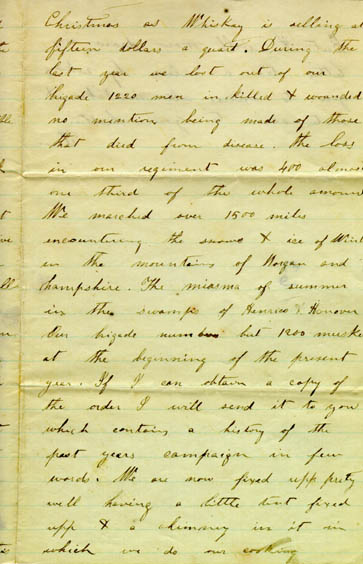 Christmas as Whiskey is selling at
fifteen dollars a quart. During the
last year we lost out of our
brigade 1220 men in killed & wounded
no mention being made of those
that died from disease. the loss
in our regiment was 400 almos
one third of the whole amoun
We marched over 1500 miles
encountering the snows & ice of Wint
in the mountains of Morgan and
hampshire. The miasma of summer
in the swamps of Henrico & Hanover
Our brigade number but 1200 muske
at the beginning of the present
year. If I can obtain a copy of
the order I will send it to you
which contains a history of the
past years campaign in few
words. We are now fixed upp prety
well having a little tent fixed
upp & a chimney in it in
which we do our cooking